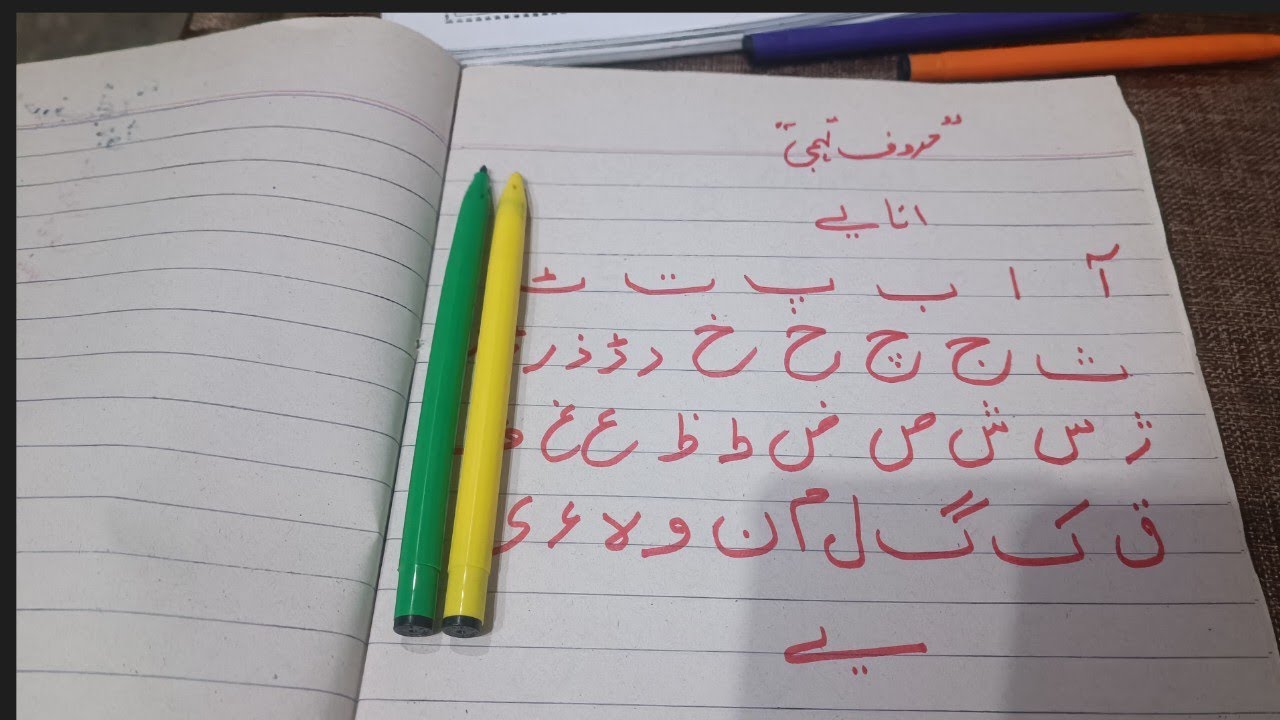 "حروف تہجی"
ا تا یے
آ ا ب پ ت ٹ
ث ج چ ح خ د ڈ ذ ر
ژ س ش ص ض ط ظ ع غ
ق ک گ ل م ن و لا ء ی
ے